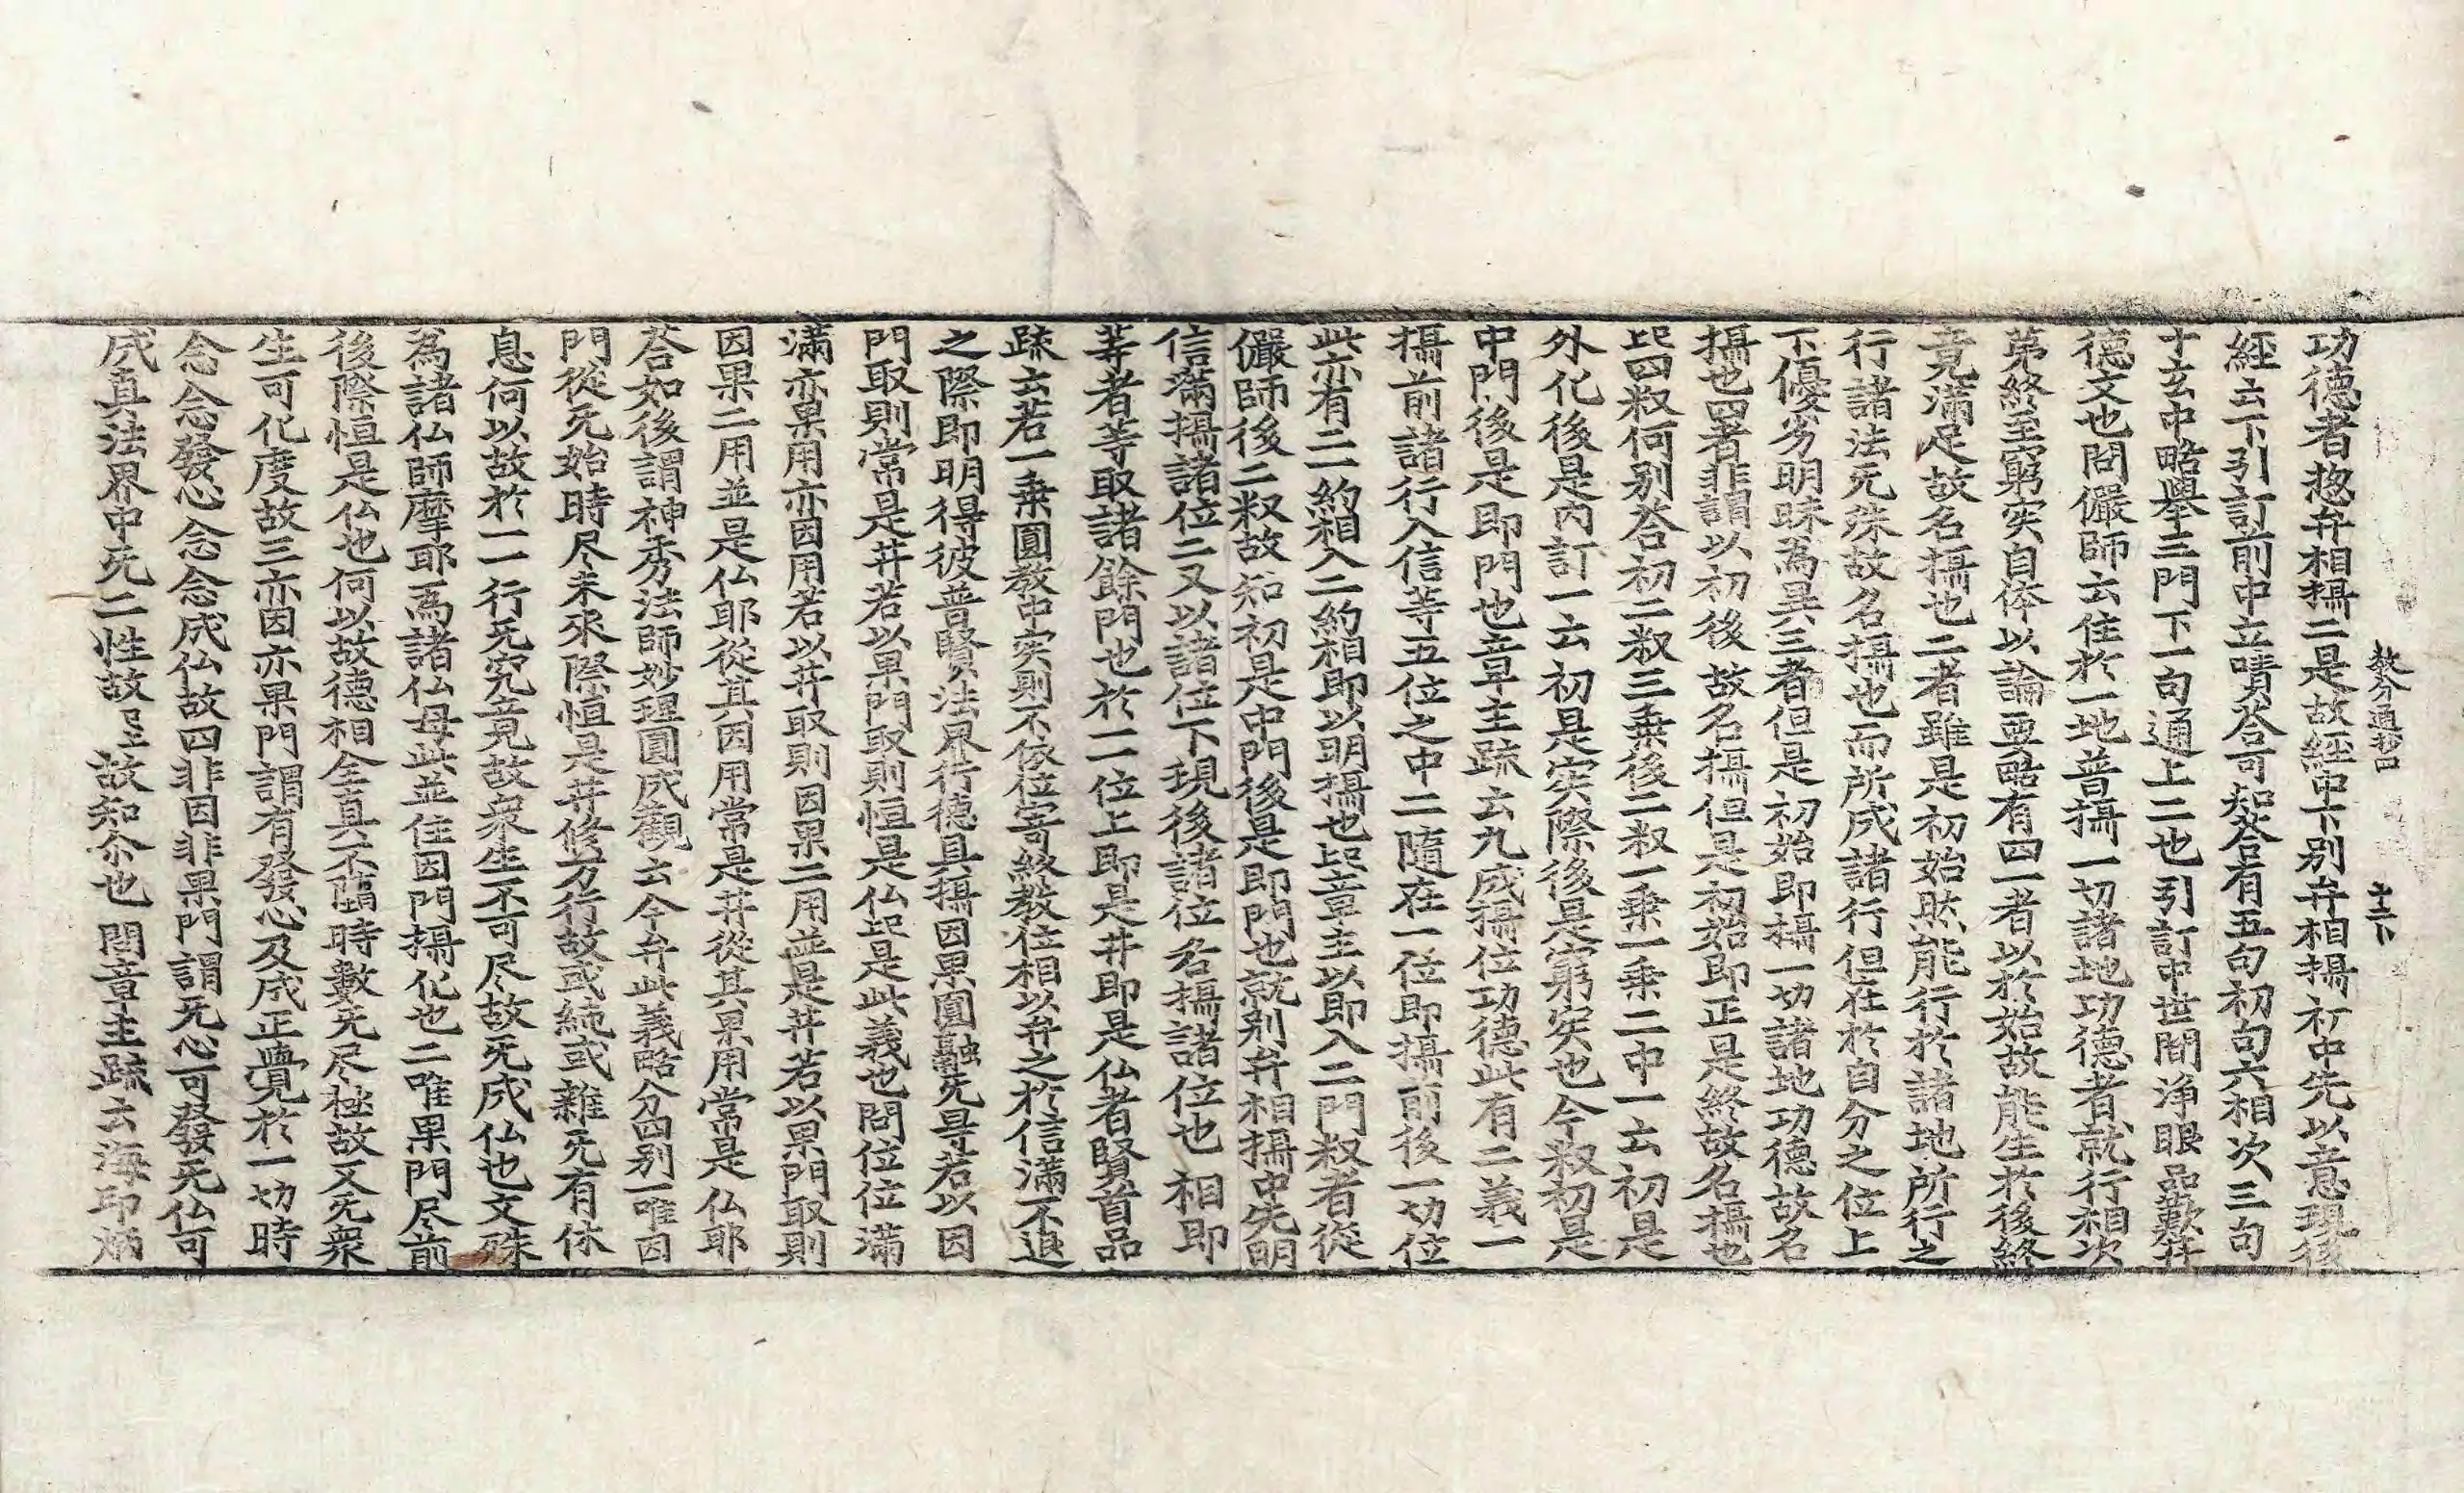 教分通抄四　十二卜
功德者惣弁相攝二是故経中下別弁相攝初中先以意現後
経云下引訂前中立晴答可知荅有五句初句六相次三句
十玄中略舉三門下一句通上二也引訂中世間淨眼品歎井
德文也問儼師云住於一地普攝一切諸地功德者就行相次
第終至窮实自体以論更略有四一者以於始故能生於後終
竟滿足故名攝也二者雖是初始然能行於諸地所行之
行諸法无殊故名攝也而所成諸行但在於自分之位上
下優劣明昧為異三者但是初始即攝一切諸地功德故名
攝也四者非謂以初後故名攝但是初始即正是終故名攝也
此四釈何別答初二釈三乗後二釈一乗一乗二中一云初是
外化後是內訂一云初是实際後是窮实也今釈初是
中門後是即門也章主䟽云九成攝位功德此有二義一
攝前諸行入信等五位之中二隨在一位即攝前後一切位
此亦有二一約相入二約相即以明攝也此章主以即入二門釈者從
儼師後二釈故知初是中門後是即門也就別弁相攝中先明
信滿攝諸位二又以諸位下現後諸位名攝諸位也 相即
等者等取諸餘門也於一位上即是井即是仏者賢首品
䟽云若一乗圓教中实則不依位寄終教位相以弁之於信滿不退
之際即明得彼普賢法界行德具攝因果圓融无㝵若以因
門取則常是井若以果門取則恒是仏此是此義也問位位滿
滿亦果用亦因用若以井取則因果二用並是井若以果門取則
因果二用並是仏耶從其因用常是井從其果用常是仏耶
荅如後謂神秀法師妙理圓成觀云今弁此義略分四別一唯因
門從无始時尽未來際恒是井修万行故或純或雜无有休
息何以故於一一行无究竟故衆生不可尽故无成仏也文殊
為諸仏師摩耶爲諸仏母此並住因門攝化也二唯果門尽前
後際恒是仏也何以故德相全真不臨時數无尽極故又无衆
生可化度故三亦因亦果門謂有發心及成正覺於一切時
念念發心念念成仏故四非因非果門謂无心可發无仏可
成真法界中无二性故已上故知尒也 問章主䟽云海印炳